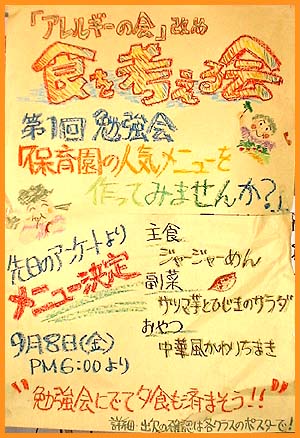 「アレルギーの会」改め
食を考える会
第1回 勉強会
「保育園の人気メニューを
作ってみませんか?」
先日のアンケートより
メニュー決定
9月8日(金)
PM6:00より
主食
ジャージャーめん
副菜
サツマ芋とひじきのサラダ
おやつ
中華風かわりちまき
"勉強会にでて夕食も済まそう!!"
詳細・出欠の確認は各クラスのポスターで!